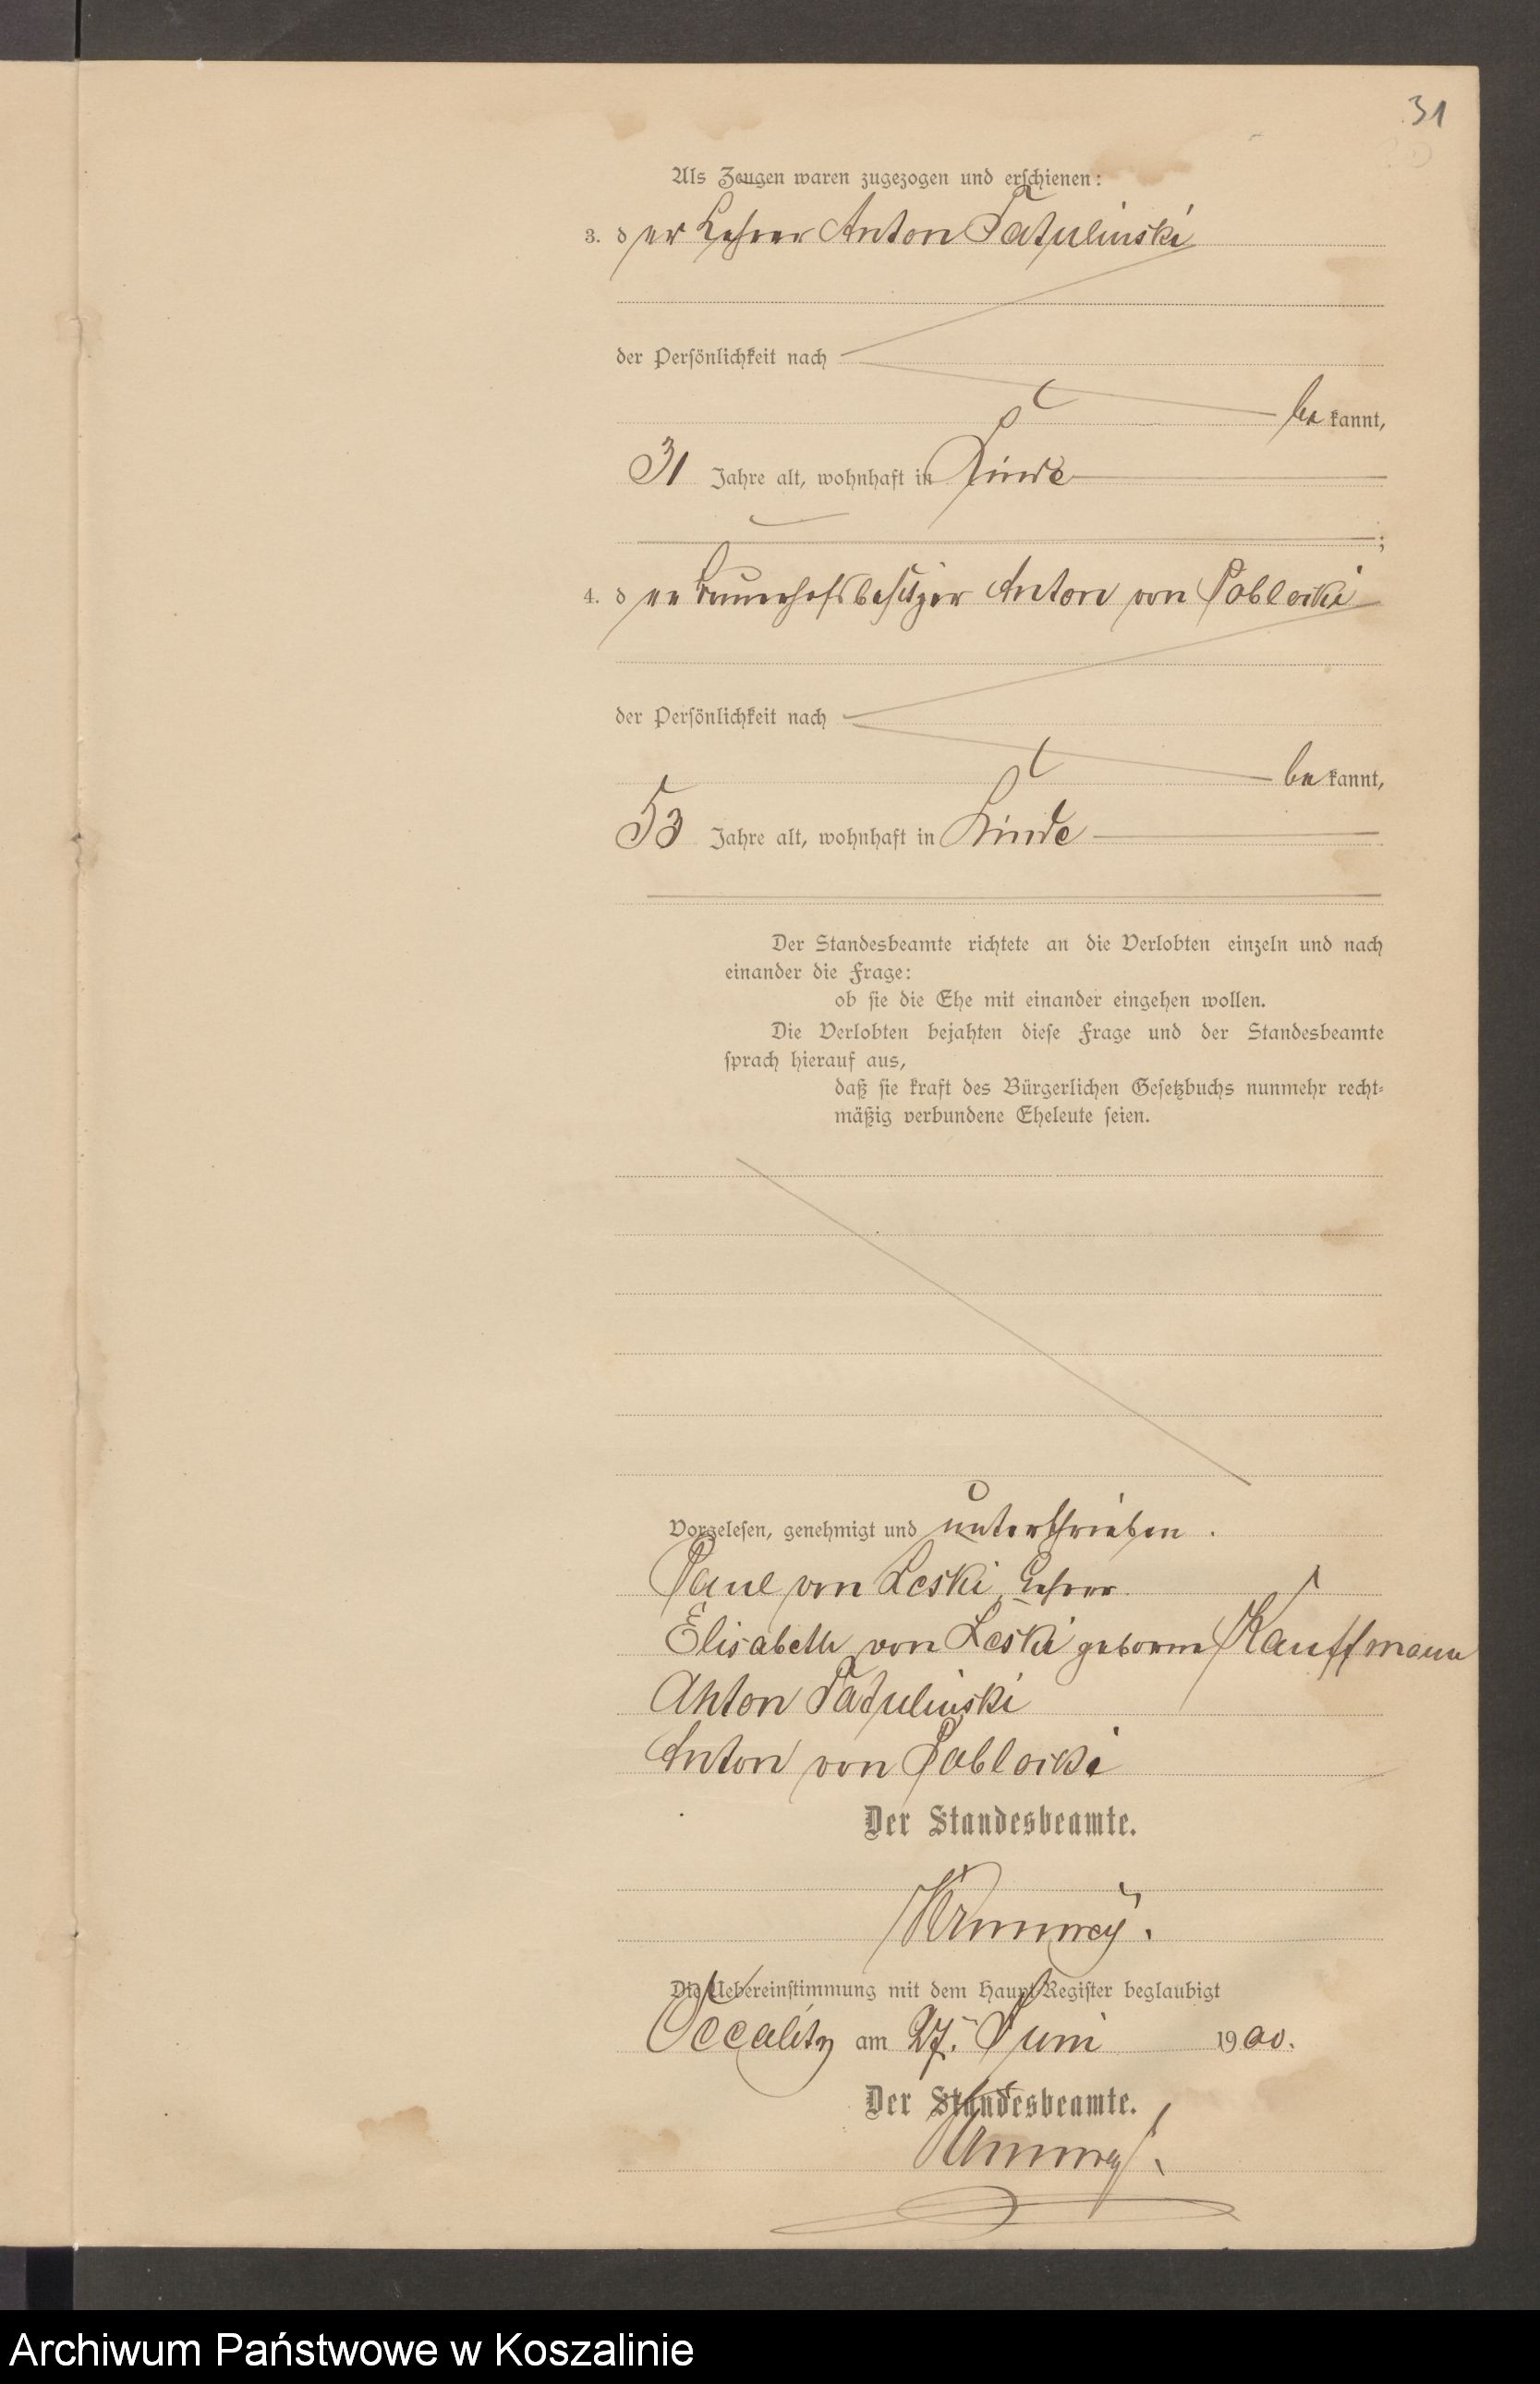 31
Als Zeugen waren zugezogen und erschienen:
3. der Lehrer Anton Tatulinski
der Persönlichkeit nach
bekannt,
31 Jahre alt, wohnhaft in Linde
;
4. der Bauernhofsbesitzer Anton von Pablocki
der Persönlichkeit nach
bekannt,
53 Jahre alt, wohnhaft in Linde
Der Standesbeamte richtete an die Verlobten einzeln und nach
einander die Frage:
ob sie die Ehe mit einander eingehen wollen.
Die Verlobten bejahten diese Frage und der Standesbeamte
sprach hierauf aus,
daß sie kraft des Bürgerlichen Gesetzbuchs nunmehr recht-
mäßig verbundene Eheleute seien.
Vorgelesen, genehmigt und unterschrieben.
Paul von Leski, Lehrer.
Elisabeth von Leski geborne Kauffmann
Anton Tatulinski
Anton von Pablocki
Der Standesbeamte.
Die Uebereinstimmung mit dem Haupt-Register beglaubigt
Occalitz am 27. Juni 1900.
Der Standesbeamte.
Archiwum Państwowe w Koszalinie